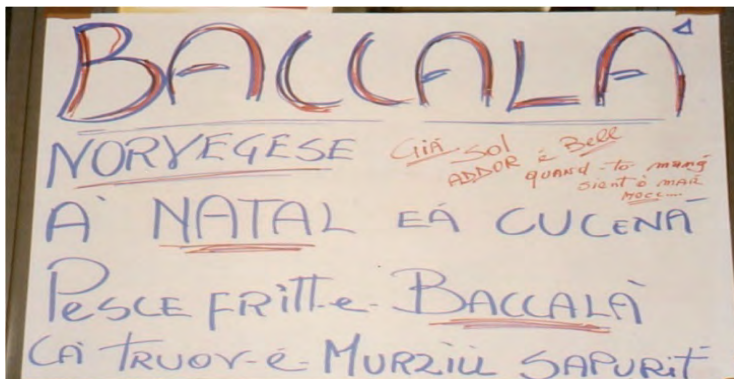 BACCALÀ
NORVEGESE
GIÀ SOL
ADDOR è BELL
QUAND-TO MANG
SIENT O MAR
MOCC....
A' NATAL EÁ CUCENÀ
PESCE FRITT-E-BACCALÀ
CÀ TRUOV-E-MURZILL SAPURIT